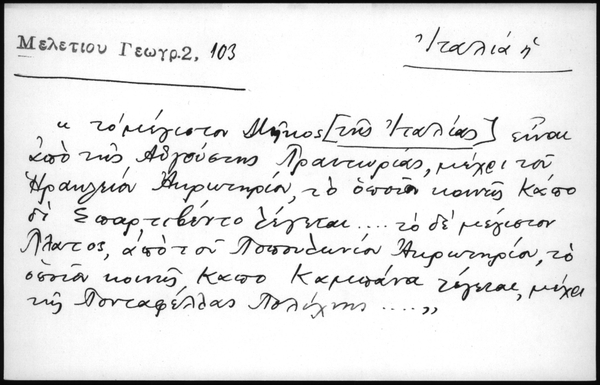 Μελετίου Γεωγρ.2, 103
Ἰταλία ἡ
« τὸ μέγιστον Μῆκος [τῆς Ἰταλίας] εἶναι
ἀπὸ τῆς Αὐγούστης Πραιτωρίας, μέχρι τοῦ
Ἡρακλείου Ἀκρωτηρίου, τὸ ὁποῖον κοινῶς Κάπο
δὲ Σπαρτιβέντο λέγεται .... τὸ δὲ μέγιστον
Πλάτος, ἀπὸ τοῦ Ποπουλωνίου Ἀκρωτηρίου, τὸ
ὁποῖον κοινῶς Κάπο Καμπάνα λέγεται, μέχρι
τῆς Πονταφέλλας Πολίχνης .... »